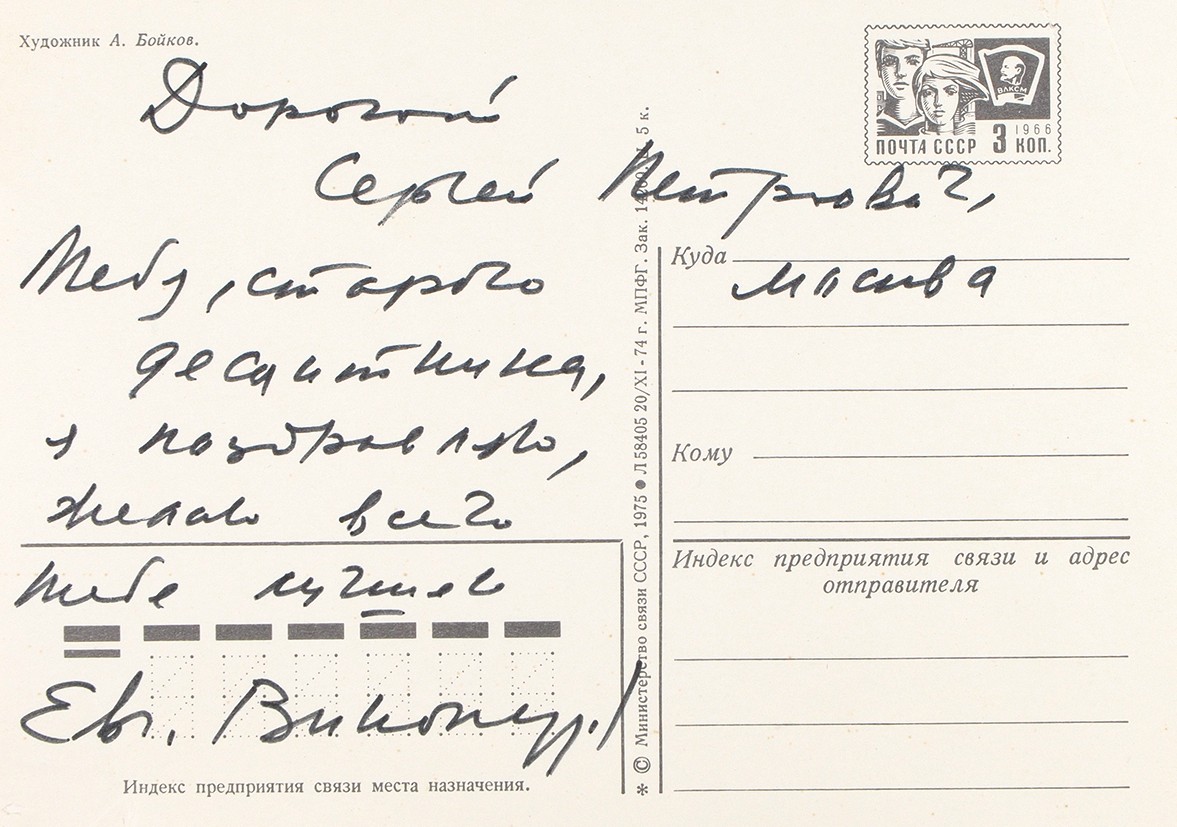 Художник А. Бойков.
Дорогой
Сергей Петрович,
Тебя, старого
десантника,
я поздравляю,
желаю всего
тебе лучшего
Евг. Винокур.
Индекс предприятия связи места назначения.
* © Министерство связи СССР, 1975 ● Л 58405 20/XI-74 г. МПФГ. Зак. 5 к.
ВЛКСМ
1966
ПОЧТА СССР 3 КОП.
Куда
Москва
Кому
Индекс предприятия связи и адрес
отправителя